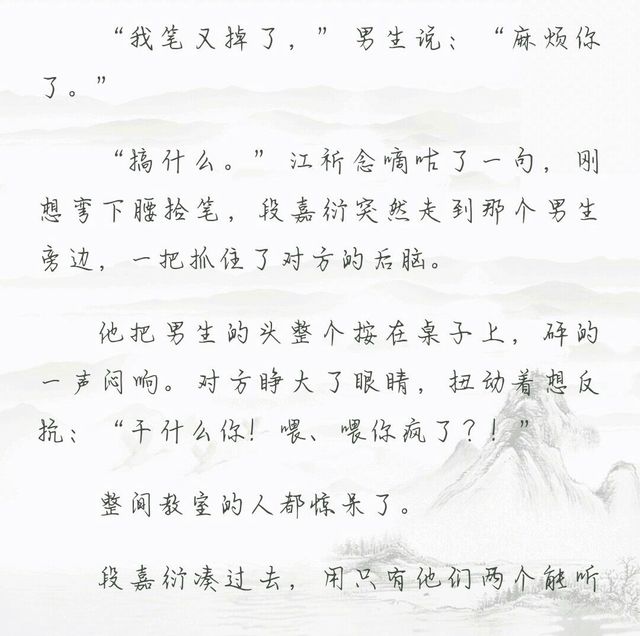 “我笔又掉了，”男生说：“麻烦你
了。”
“搞什么。”江祈念嘀咕了一句，刚
想弯下腰拾笔，段嘉衍突然走到那个男生
旁边，一把抓住了对方的后脑。
他把男生的头整个按在桌子上，砰的
一声闷响。对方睁大了眼睛，扭动着想反
抗：“干什么你！喂、喂你疯了？！”
整间教室的人都惊呆了。
段嘉衍凑过去，用只有他们两个能听